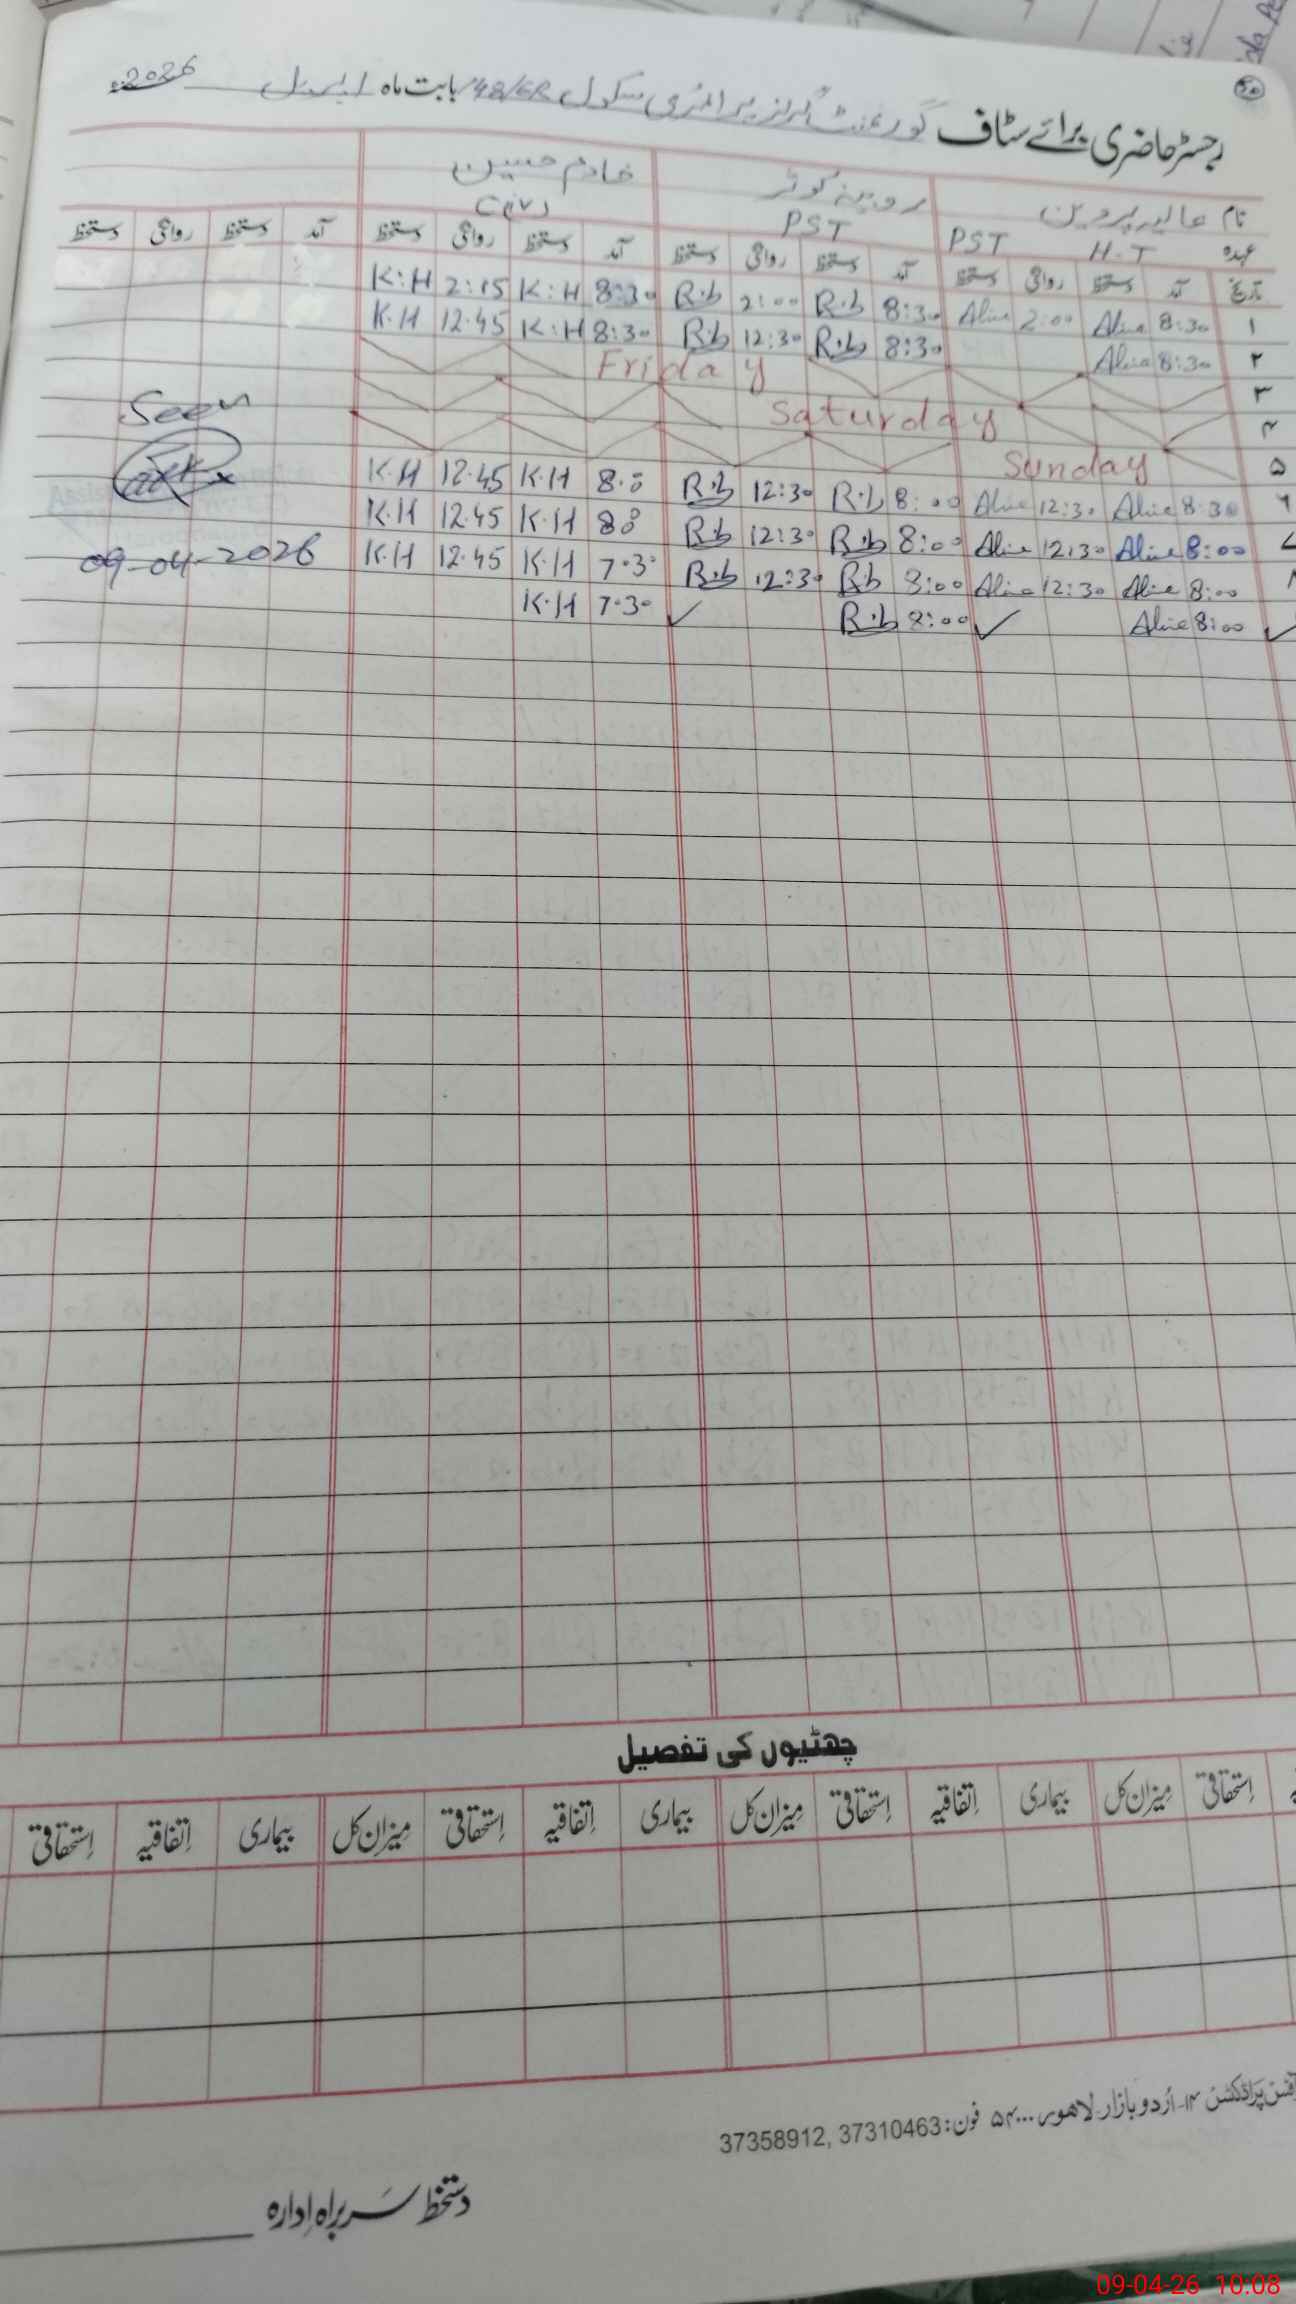 رجسٹر حاضری برائے سٹاف گورنمنٹ گرلز پرائمری سکول 48/ER بابت ماہ اپریل 2026ء
نام عالیہ پروین روبینہ کوثر خادم حسین
عہدہ H.T PST PST
تاریخ آمد دستخط روانگی دستخط آمد دستخط روانگی دستخط آمد دستخط روانگی دستخط آمد دستخط روانگی دستخط
۱ 8:30 Alia 2:00 Alia 8:30 R.b 2:00 R.b 8:30 K:H 2:15 K:H
۲ 8:30 Alia 8:30 R.b 12:30 R.b 8:30 K:H 12.45 K.H
۳ Friday
۴ Saturday
۵ Sunday
۶ 8:30 Alia 12:30 Alia 8:00 R.b 12:30 R.b 8.00 K.H 12.45 K.H
۷ 8:00 Alia 12:30 Alia 8:00 R.b 12:30 R.b 8.00 K.H 12.45 K.H
8:00 Alia 12:30 Alia 8:00 R.b 12:30 R.b 7.30 K.H 12.45 K.H
8:00 Alia 8:00 R.b 7.30 K.H
Seen
09-04-2026
چھٹیوں کی تفصیل
اِستحقاقی میزان کل بیماری اِتفاقیہ اِستحقاقی میزان کل بیماری اِتفاقیہ اِستحقاقی میزان کل بیماری اِتفاقیہ اِستحقاقی
۱۴-اُردو بازار لاہور ۵۴۰۰۰ فون: 37310463, 37358912
دستخط سربراہ اِدارہ
09-04-26 10:08